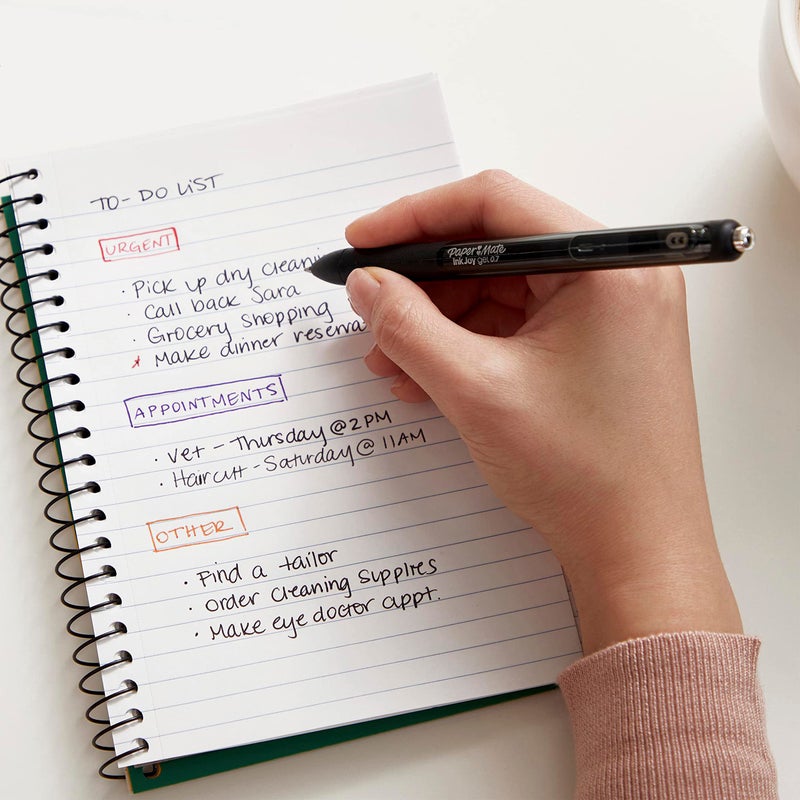 TO-DO LIST
URGENT
· Pick up dry cleani
· Call back Sara
· Grocery shopping
* Make dinner reserva
APPOINTMENTS
· Vet - Thursday @ 2 PM
· Haircut - Saturday @ 11 AM
OTHER
· Find a tailor
· Order cleaning supplies
· Make eye doctor appt.
Paper Mate
InkJoy gel 0.7